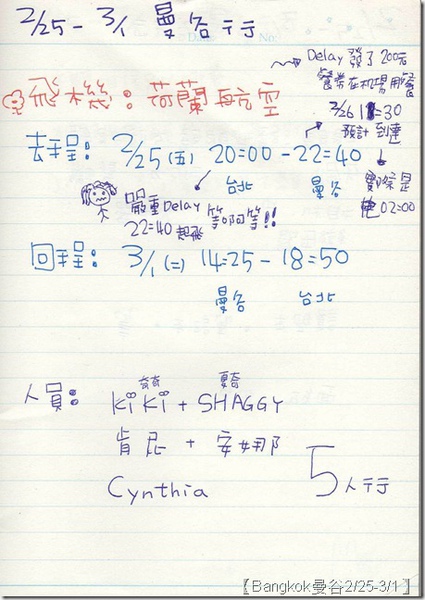 2/25 - 3/1 曼谷行
Delay 發了 200元
餐券在机場用餐
飛機: 荷蘭航空
2/26 1:30
預計到達
去程: 2/25 (五) 20:00 - 22:40
台北 曼谷
實際是
02:00
嚴重Delay
22:40 起飛
等啊等!!
回程: 3/1 (二) 14:25 - 18:50
曼谷 台北
人員: KiKi + SHAGGY
肯尼 + 安娜
Cynthia
5人行
【Bangkok曼谷2/25-3/1】